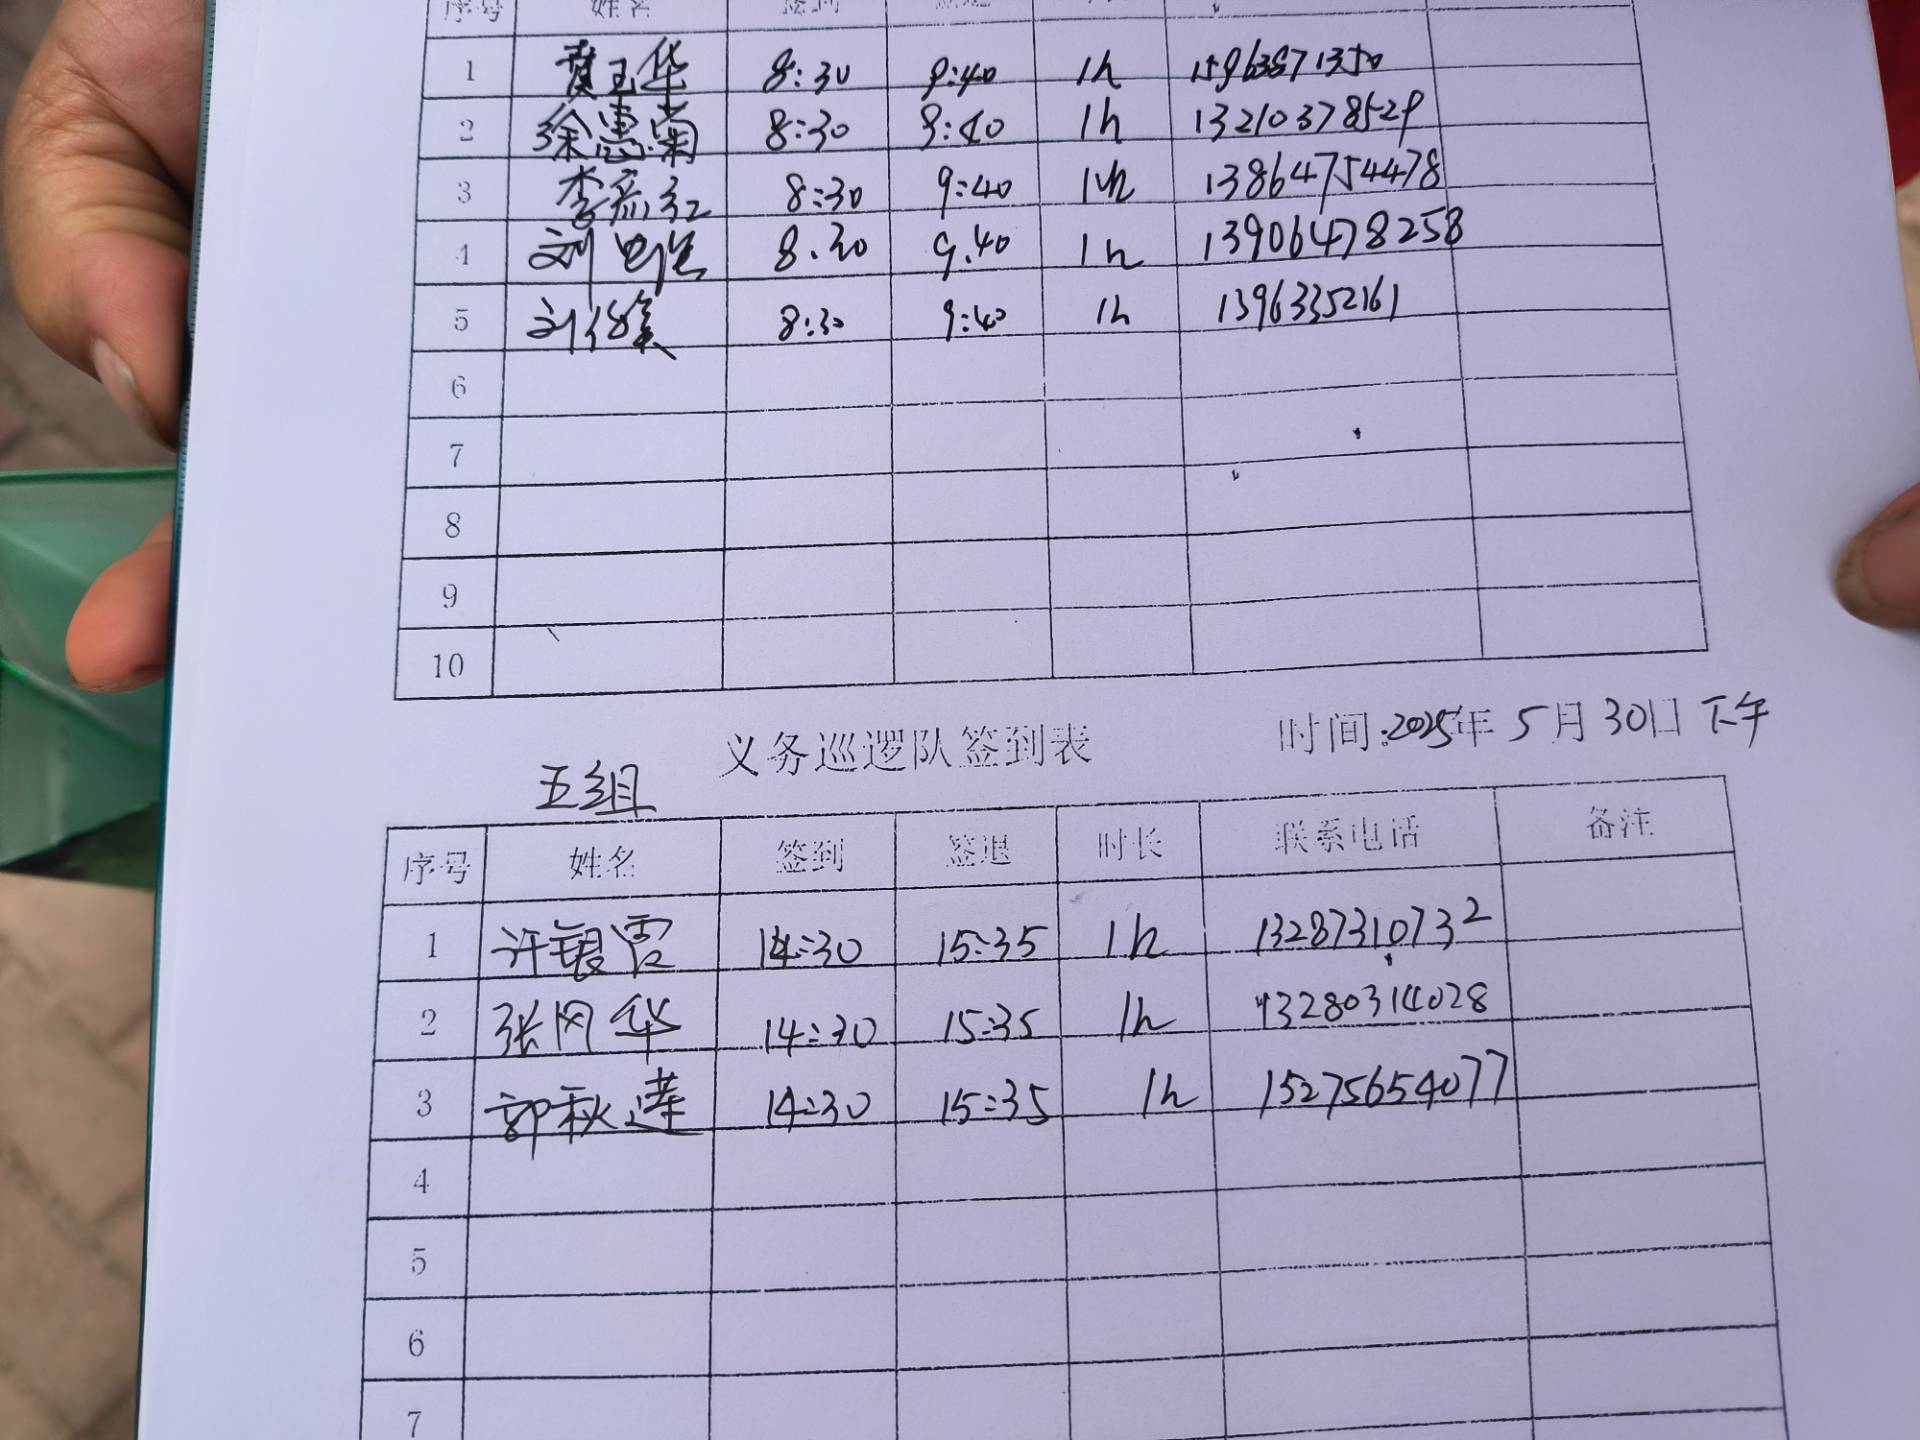 序号 姓名 签到
1 黄玉华 8:30 9:40 1h 15963871350
2 徐惠菊 8:30 9:40 1h 13210378529
3 李 8:30 9:40 1h 13864754478
4 刘 8.30 9.40 1h 13906478258
5 刘 8:30 9:40 1h 13963352161
6
7
8
9
10
义务巡逻队签到表 时间:2025年5月30日下午
五组
序号 姓名 签到 签退 时长 联系电话 备注
1 许银霞 14:30 15:35 1h 13287310732
2 张冈华 14:30 15:35 1h 13280314028
3 郭秋莲 14:30 15:35 1h 15275654077
4
5
6
7